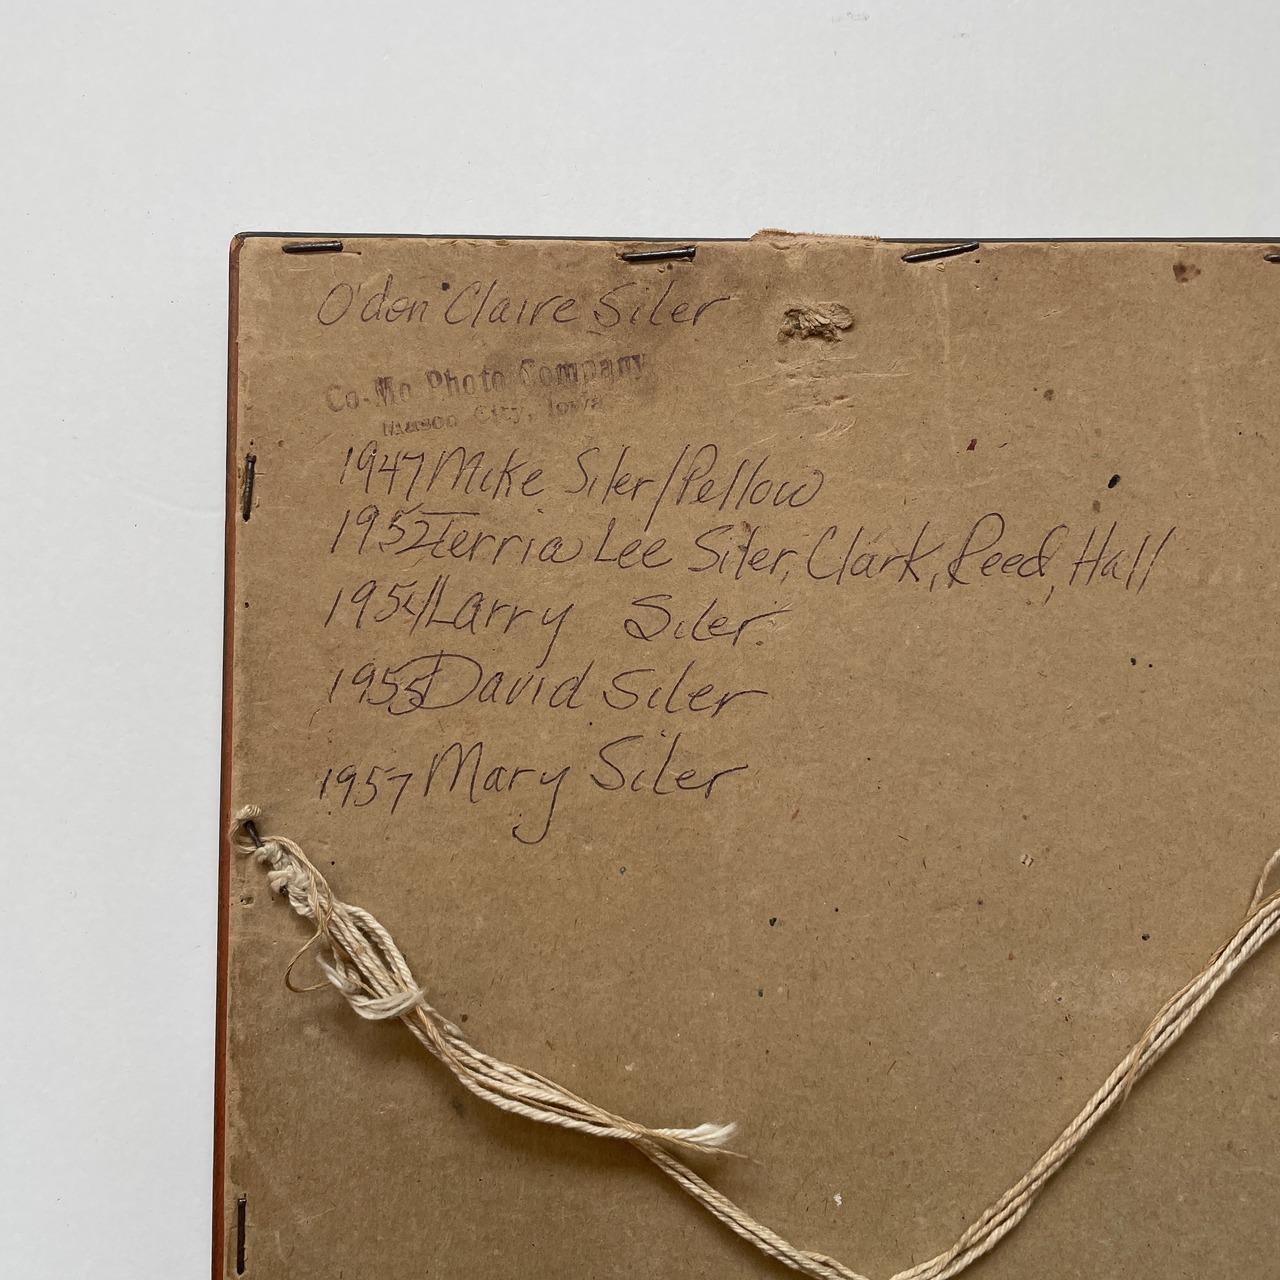 O'den Claire Siler
Co-Mo Photo Company
Mason City, Iowa
1947 Mike Siler/Pellow
1952 Terria Lee Siler, Clark, Reed, Hall
1954 Larry Siler
1955 David Siler
1957 Mary Siler